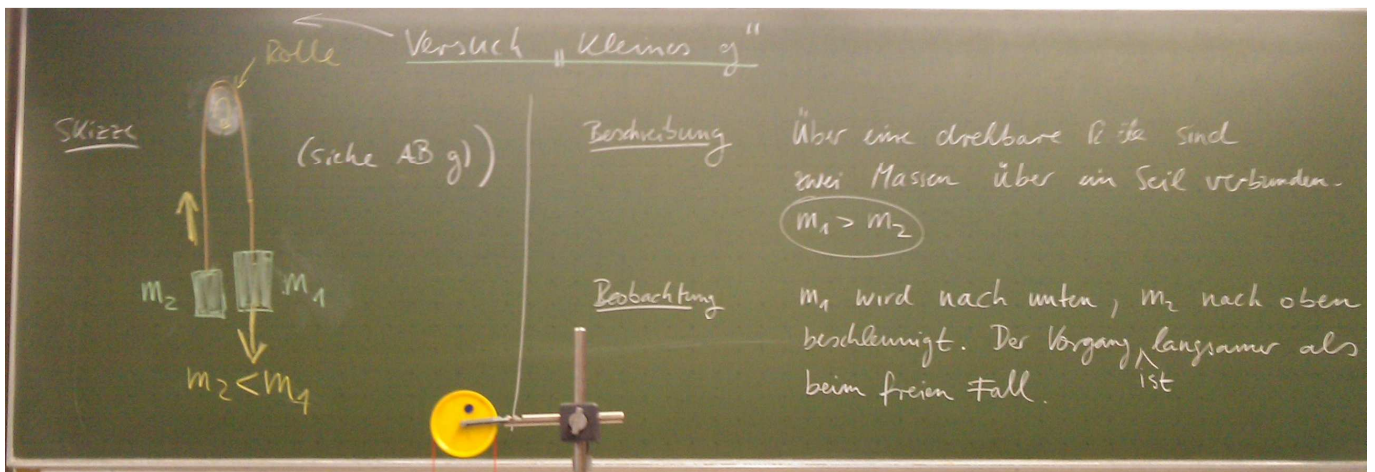 Versuch „Kleines g"
Rolle
Skizze
(siehe AB g))
m₂
m₁
m₂ < m₁
Beschreibung
Über eine drehbare Rolle sind
zwei Massen über ein Seil verbunden.
m₁ > m₂
Beobachtung
m₁ wird nach unten, m₂ nach oben
beschleunigt. Der Vorgang ist langsamer als
beim freien Fall.